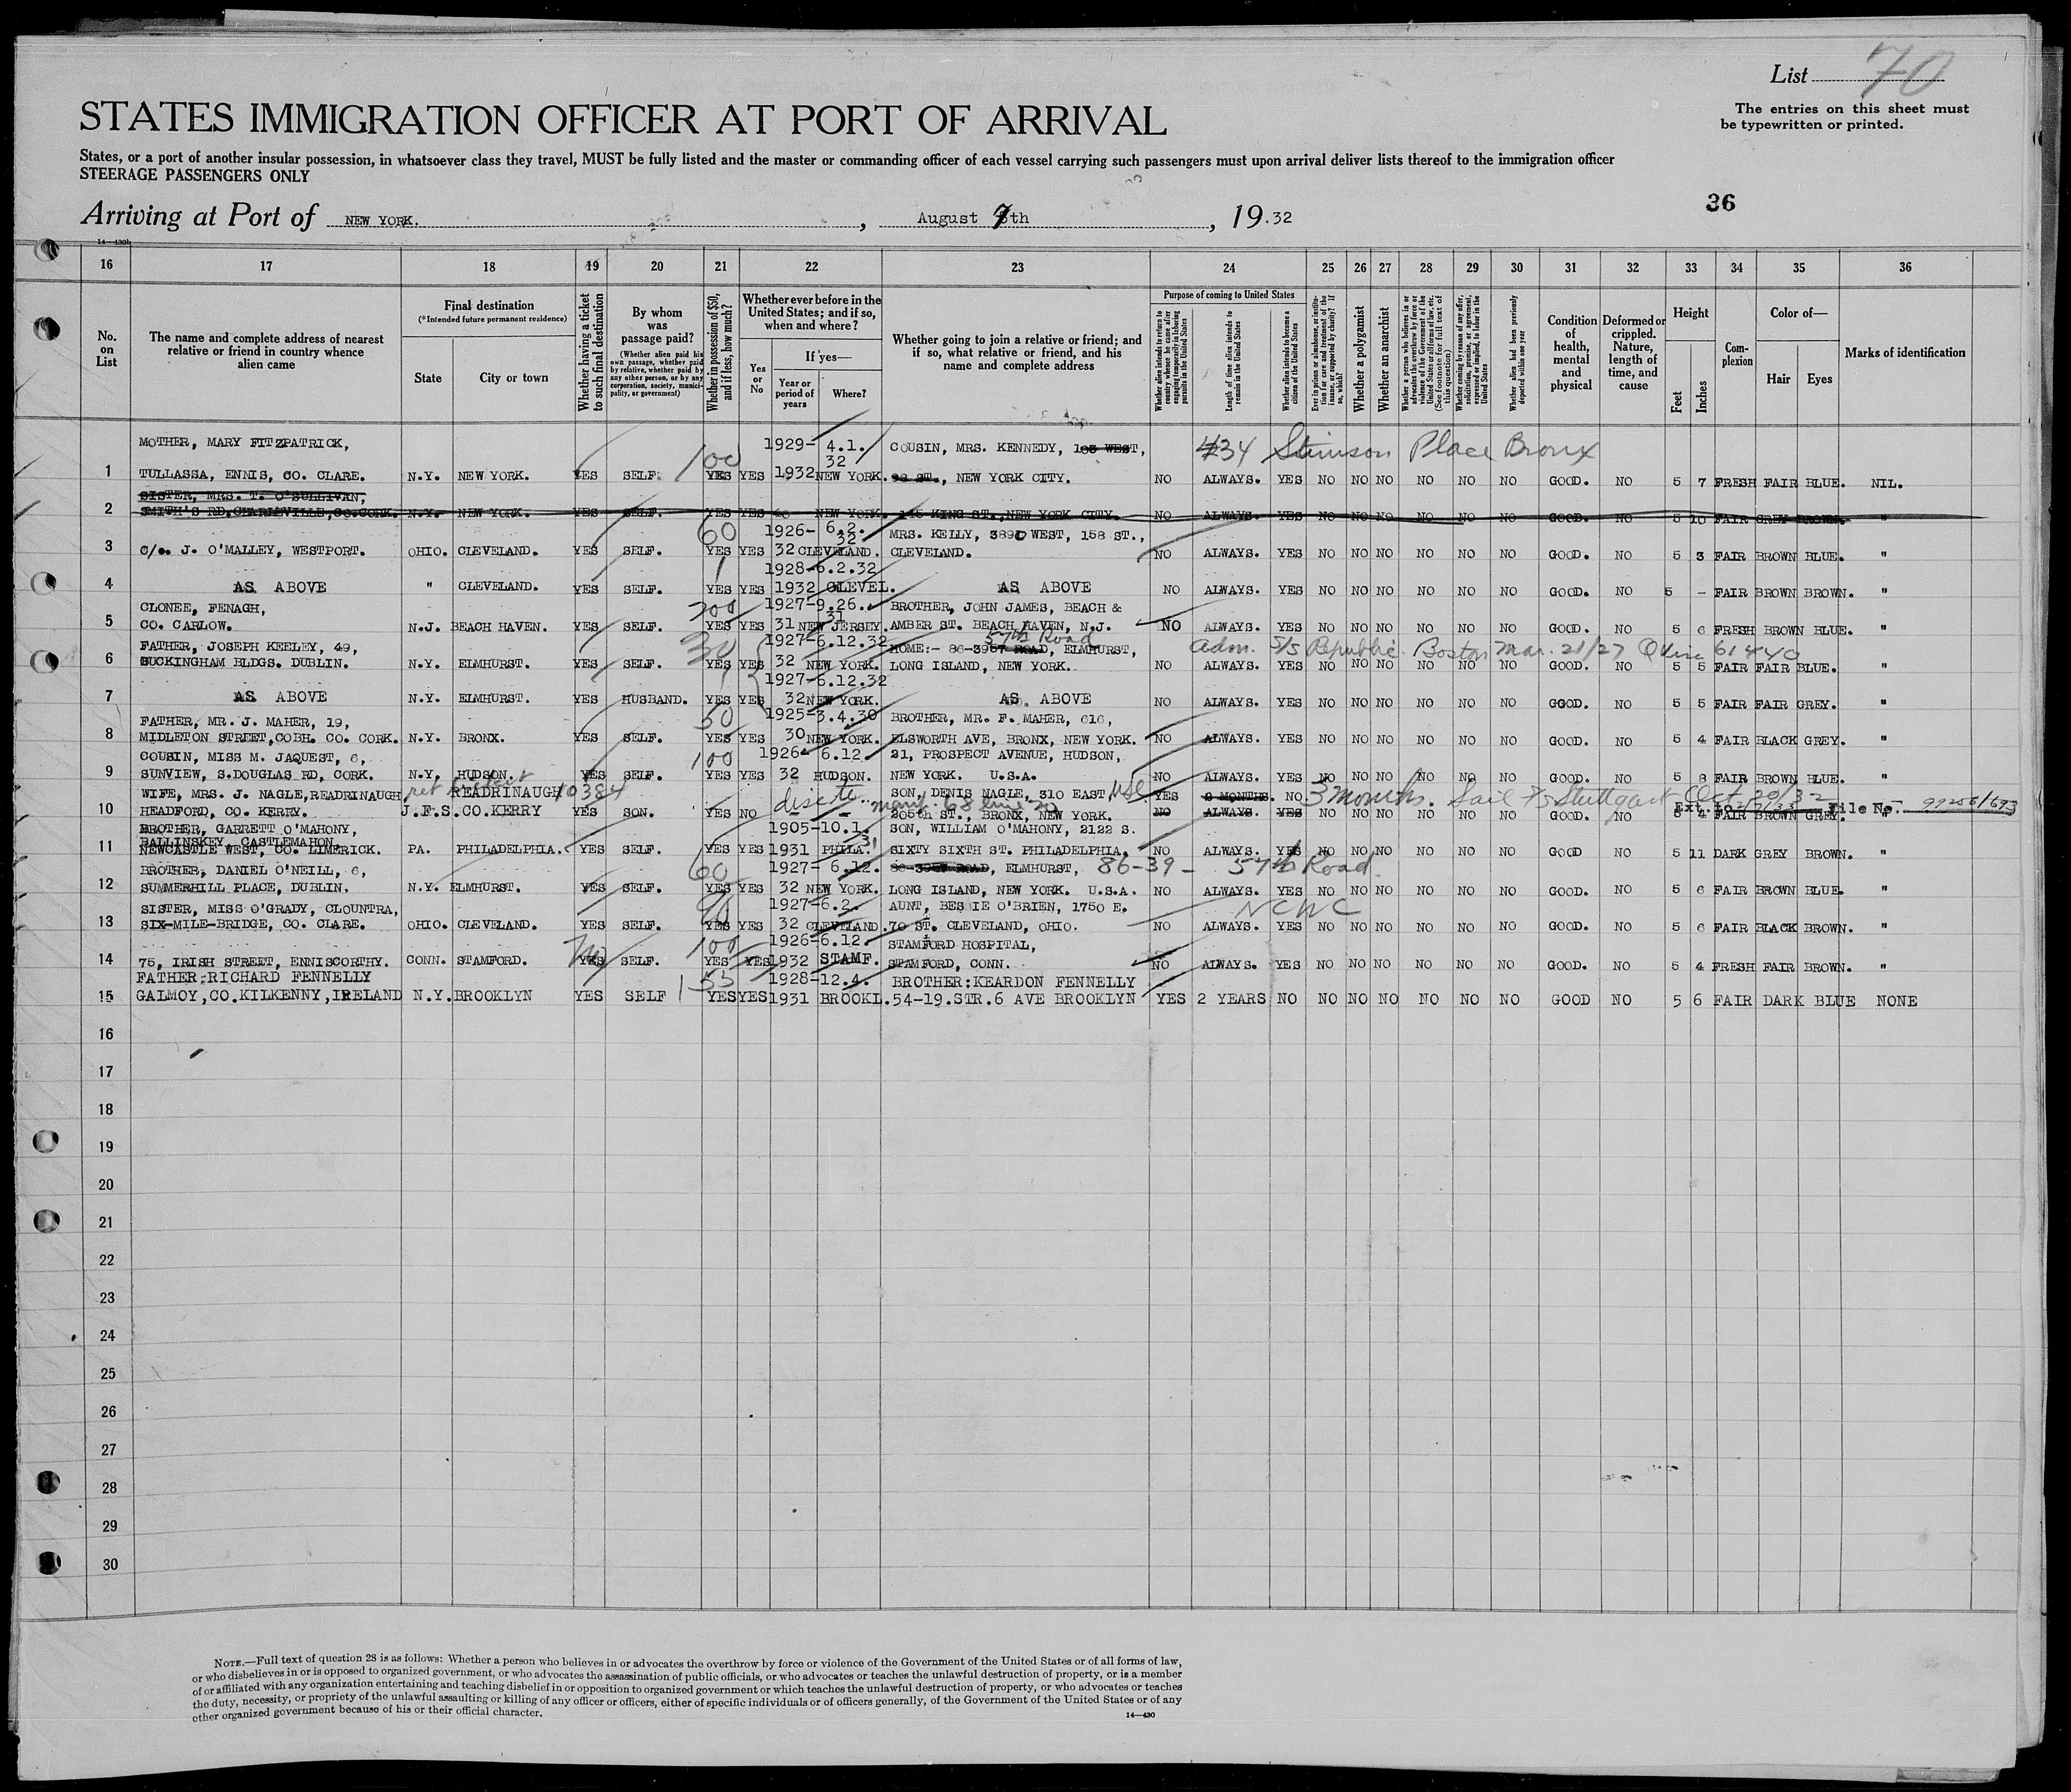 List 70
The entries on this sheet must
be typewritten or printed.
STATES IMMIGRATION OFFICER AT PORT OF ARRIVAL
States, or a port of another insular possession, in whatsoever class they travel, MUST be fully listed and the master or commanding officer of each vessel carrying such passengers must upon arrival deliver lists thereof to the immigration officer
STEERAGE PASSENGERS ONLY
36
Arriving at Port of NEW YORK. , August 7th , 19.32
14—430b
16 17 18 19 20 21 22 23 24 25 26 27 28 29 30 31 32 33 34 35 36
No. on List
The name and complete address of nearest relative or friend in country whence alien came
Final destination
(*Intended future permanent residence)
State
City or town
Whether having a ticket to such final destination
By whom was passage paid?
(Whether alien paid his own passage, whether paid by relative, whether paid by any other person, or by any corporation, society, municipality, or government)
Whether in possession of $50, and if less, how much?
Whether ever before in the United States; and if so, when and where?
Yes or No
If yes—
Year or period of years
Where?
Whether going to join a relative or friend; and if so, what relative or friend, and his name and complete address
Purpose of coming to United States
Whether alien intends to return to country whence he came after engaging temporarily in laboring pursuits in the United States
Length of time alien intends to remain in the United States
Whether alien intends to become a citizen of the United States
Ever in prison or almshouse, or institution for care and treatment of the insane, or supported by charity? If so, which?
Whether a polygamist
Whether an anarchist
Whether a person who believes in or advocates the overthrow by force or violence of the Government of the United States or all forms of law, etc. (See footnote for full text of this question)
Whether coming by reason of any offer, solicitation, promise, or agreement, expressed or implied, to labor in the United States
Whether alien had been previously deported within one year
Condition of health, mental and physical
Deformed or crippled. Nature, length of time, and cause
Height
Feet
Inches
Complexion
Color of—
Hair
Eyes
Marks of identification
MOTHER, MARY FITZPATRICK, 1929- 4.1. COUSIN, MRS. KENNEDY, 108 WEST, 434 Stimson Place Bronx
100 32
1 TULLASSA, ENNIS, CO. CLARE. N.Y. NEW YORK. YES SELF. YES YES 1932 NEW YORK. 98 ST., NEW YORK CITY. NO ALWAYS. YES NO NO NO NO NO NO GOOD. NO 5 7 FRESH FAIR BLUE. NIL.
SISTER, MRS. T. O'SULLIVAN,
2 SMITH'S RD. CHARLEVILLE, CO. CORK. N.Y. NEW YORK. YES SELF. YES YES NEW YORK. KING ST., NEW YORK CITY. NO ALWAYS. YES NO NO NO NO NO NO GOOD. NO 5 10 FAIR GREY BROWN. "
60 1926- 6.2. MRS. KELLY, 3890 WEST, 158 ST.,
32
3 C/o. J. O'MALLEY, WESTPORT. OHIO. CLEVELAND. YES SELF. YES YES 32 CLEVELAND. CLEVELAND. NO ALWAYS. YES NO NO NO NO NO NO GOOD. NO 5 3 FAIR BROWN BLUE. "
1928-6.2.32
4 AS ABOVE " CLEVELAND. YES SELF. YES YES 1932 CLEVEL. AS ABOVE NO ALWAYS. YES NO NO NO NO NO NO GOOD. NO 5 - FAIR BROWN BROWN. "
CLONEE, FENAGH, 200 1927-9.26. BROTHER, JOHN JAMES, BEACH &
31
5 CO. CARLOW. N.J. BEACH HAVEN. YES SELF. YES YES 31 NEW JERSEY. AMBER ST. BEACH HAVEN, N.J. NO ALWAYS. YES NO NO NO NO NO NO GOOD. NO 5 6 FRESH BROWN BLUE. "
57th Road
FATHER, JOSEPH KEELEY, 49, 30 1927-6.12.32 HOME:- 86-3967 ROAD, ELMHURST, Adm. S/S Republic. Boston Mar. 21/27 61440
6 BUCKINGHAM BLDGS. DUBLIN. N.Y. ELMHURST. YES SELF. YES YES 32 NEW YORK. LONG ISLAND, NEW YORK. NO ALWAYS. YES NO NO NO NO NO NO GOOD. NO 5 5 FAIR FAIR BLUE. "
1927-6.12.32
7 AS ABOVE N.Y. ELMHURST. YES HUSBAND. YES YES 32 NEW YORK. AS ABOVE NO ALWAYS. YES NO NO NO NO NO NO GOOD. NO 5 5 FAIR FAIR GREY. "
FATHER, MR. J. MAHER, 19, 50 1925-3.4.30 BROTHER, MR. F. MAHER, 616,
8 MIDLETON STREET, COBH. CO. CORK. N.Y. BRONX. YES SELF. YES YES 30 NEW YORK. ELSWORTH AVE, BRONX, NEW YORK. NO ALWAYS. YES NO NO NO NO NO NO GOOD. NO 5 4 FAIR BLACK GREY. "
COUSIN, MISS M. JAQUEST, 6, 100 1926- 6.12. 21, PROSPECT AVENUE, HUDSON,
9 SUNVIEW, S. DOUGLAS RD, CORK. N.Y. HUDSON. YES SELF. YES YES 32 HUDSON. NEW YORK. U.S.A. NO ALWAYS. YES NO NO NO NO NO NO GOOD. NO 5 8 FAIR BROWN BLUE. "
WIFE, MRS. J. NAGLE, READRINAUGH, ret ticket READRINAUGH 10384 SON, DENIS NAGLE, 310 EAST USC YES 2 MONTHS. NO 3 months. Sail SS Stuttgart Oct 20/32
manf. 68 line 20 Ext. to File No. 99256/693
10 HEADFORD, CO. KERRY. J.F.S. CO. KERRY YES SON. YES NO 205th ST., BRONX, NEW YORK. NO ALWAYS. YES NO NO NO NO NO NO GOOD. NO 5 4 FAIR BROWN GREY. "
BROTHER, GARRETT O'MAHONY, 1905-10.1. SON, WILLIAM O'MAHONY, 2122 S.
BALLINSKEY, CASTLEMAHON 31
11 NEWCASTLE WEST, CO. LIMERICK. PA. PHILADELPHIA. YES SELF. YES YES 1931 PHILA. SIXTY SIXTH ST. PHILADELPHIA. NO ALWAYS. YES NO NO NO NO NO NO GOOD NO 5 11 DARK GREY BROWN. "
BROTHER, DANIEL O'NEILL, 6, 60 1927- 6.12. 86-3967 ROAD, ELMHURST, 86-39 - 57th Road.
12 SUMMERHILL PLACE, DUBLIN. N.Y. ELMHURST. YES SELF. YES YES 32 NEW YORK. LONG ISLAND, NEW YORK. U.S.A. NO ALWAYS. YES NO NO NO NO NO NO GOOD. NO 5 6 FAIR BROWN BLUE. "
SISTER, MISS O'GRADY, CLOUNTRA, 1927-6.2. AUNT, BESSIE O'BRIEN, 1750 E. NCWC
13 SIX-MILE-BRIDGE, CO. CLARE. OHIO. CLEVELAND. YES SELF. YES YES 32 CLEVELAND. 70 ST. CLEVELAND, OHIO. NO ALWAYS. YES NO NO NO NO NO NO GOOD. NO 5 6 FAIR BLACK BROWN. "
No 100 1926-6.12. STAMFORD HOSPITAL,
14 75, IRISH STREET, ENNISCORTHY. CONN. STAMFORD. YES SELF. YES YES 1932 STAMF. STAMFORD, CONN. NO ALWAYS. YES NO NO NO NO NO NO GOOD. NO 5 4 FRESH FAIR BROWN. "
FATHER:RICHARD FENNELLY 155 1928-12.4. BROTHER:KEARDON FENNELLY
15 GALMOY, CO. KILKENNY, IRELAND N.Y. BROOKLYN YES SELF YES YES 1931 BROOKL. 54-19.STR.6 AVE BROOKLYN YES 2 YEARS NO NO NO NO NO NO NO GOOD NO 5 6 FAIR DARK BLUE NONE
16
17
18
19
20
21
22
23
24
25
26
27
28
29
30
NOTE.—Full text of question 28 is as follows: Whether a person who believes in or advocates the overthrow by force or violence of the Government of the United States or of all forms of law,
or who disbelieves in or is opposed to organized government, or who advocates the assassination of public officials, or who advocates or teaches the unlawful destruction of property, or is a member
of or affiliated with any organization entertaining and teaching disbelief in or opposition to organized government or which teaches the unlawful destruction of property, or who advocates or teaches
the duty, necessity, or propriety of the unlawful assaulting or killing of any officer or officers, either of specific individuals or of officers generally, of the Government of the United States or of any
other organized government because of his or their official character.
14—430